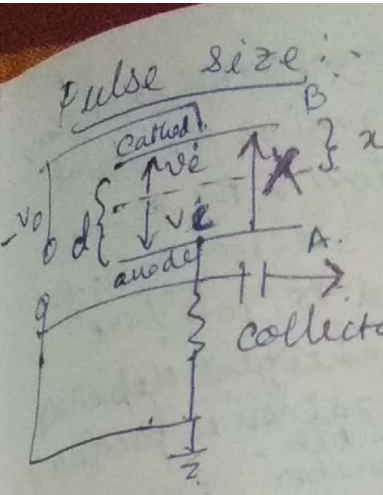 Pulse size :-
B
Cathod
x
+ve
-V0
d
ve
A.
anode
collecto